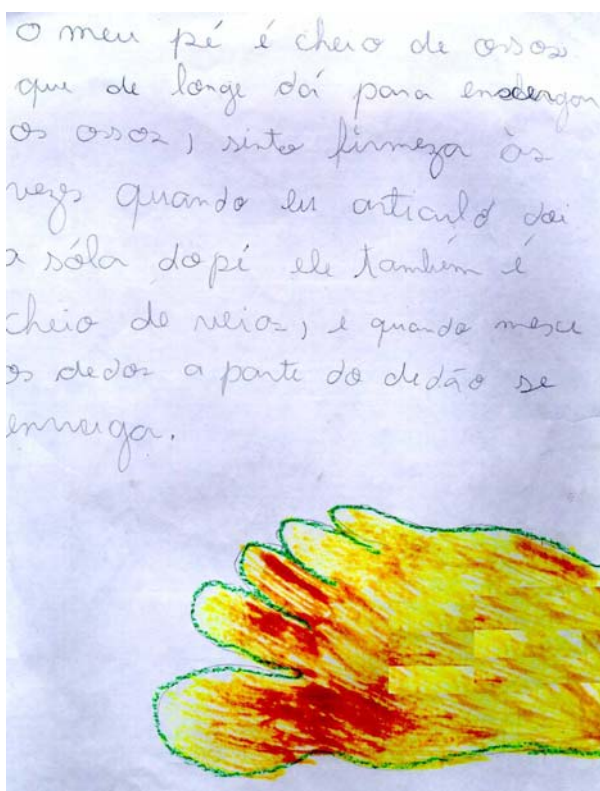 O meu pé é cheio de ossos
que de longe dá para enxergar
os ossos, sinto firmeza às
vezes quando eu articulo doi
a sóla dopé ele também é
cheio de veias, e quando mexe
os dedos a parte do dedão se
enrruga.